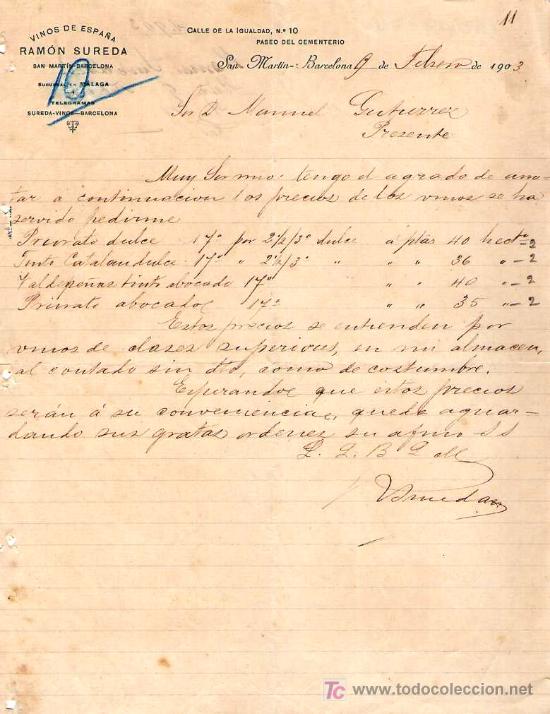 11
VINOS DE ESPAÑA
RAMÓN SUREDA
SAN MARTÍN-BARCELONA
SUCURSAL EN MÁLAGA
TELEGRAMAS
SUREDA-VINOS-BARCELONA
CALLE DE LA IGUALDAD, N.º 10
PASEO DEL CEMENTERIO
San Martín-Barcelona 9 de Febrero de 1903
Sor D. Manuel Gutierrez
Presente
Muy Sor mio: tengo el agrado de ano-
tar a continuacion los precios de los vinos se ha
servido pedirme
Priorato dulce 17º por 2½/3º dulce á ptas 40 hecto - 2
Tinto Catalan dulce 17º " 2½/3º " " " 36 " - 2
Valdepeñas tinto abocado 17º " " 40 " - 2
Priorato abocado 17º " " 35 " - 2
Estos precios se entienden por
vinos de clases superiores, en mi almacen,
al contado sin dto, como de costumbre.
Esperando que estos precios
serán á su conveniencia, queda aguar-
dando sus gratas ordenes su afmo SS
Q. S. B. S. M.
RSureda
TC
www.todocoleccion.net